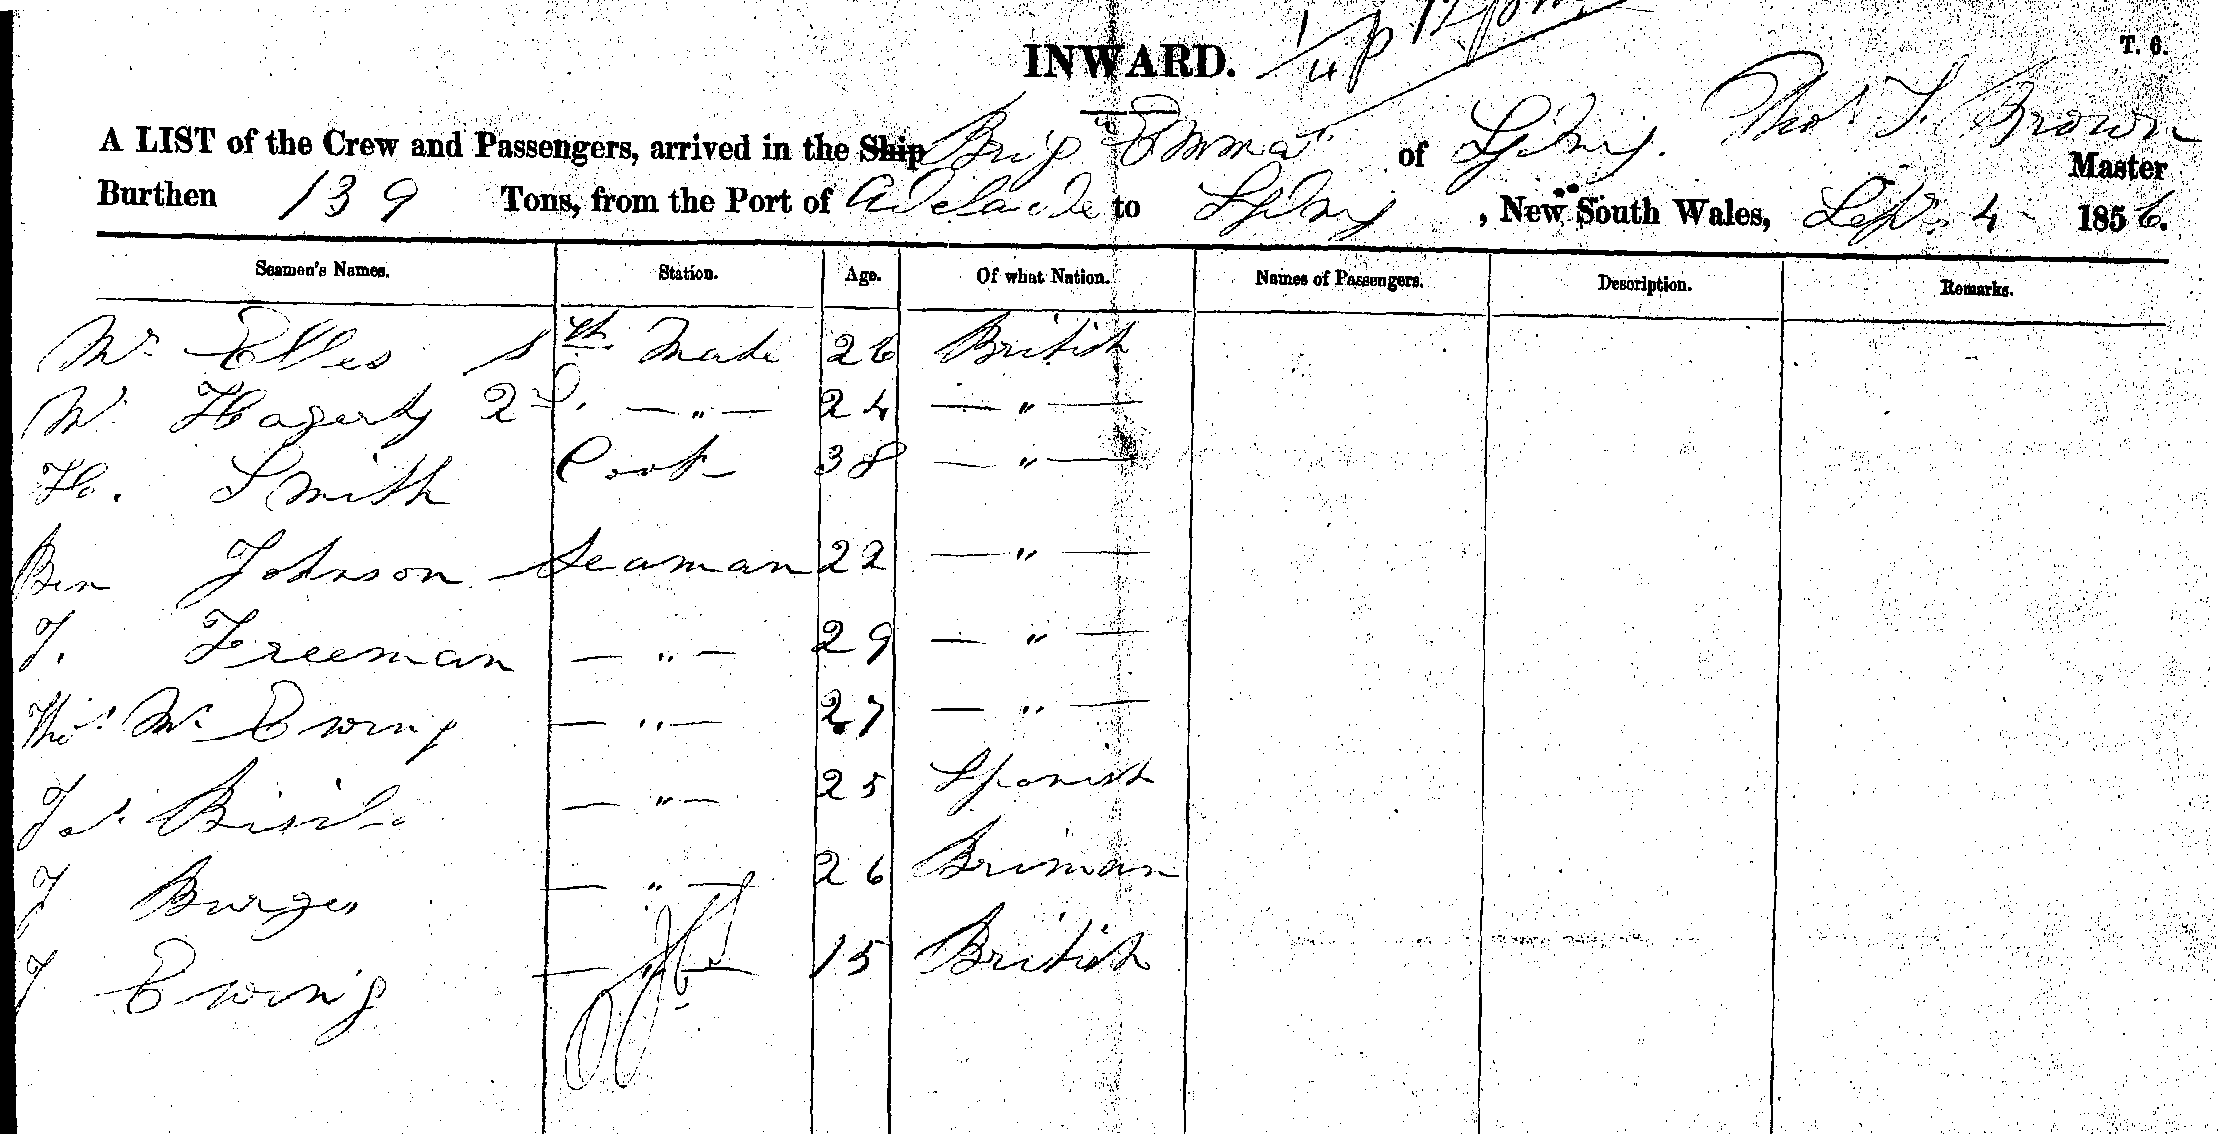 INWARD.
T. 6.
A LIST of the Crew and Passengers, arrived in the Ship Brig "Emma" of Sydney. Thos. S. Brown Master
Burthen 139 Tons, from the Port of Adelaide to Sydney, New South Wales, Sept. 4 1856.
Seamen's Names. Station. Age. Of what Nation. Names of Passengers. Description. Remarks.
Mr Elles Mate 26 British
W. Hagerty 2d. — " — 24 — " —
H. Smith Cook 38 — " —
Ben Johnson Seaman 22 — " —
J. Freeman — " — 29 — " —
Thos Mc Ewing — " — 27 — " —
Jas. — " — 25 Spanish
J Burges — " — 26 Briman
J Ewing — " — 15 British